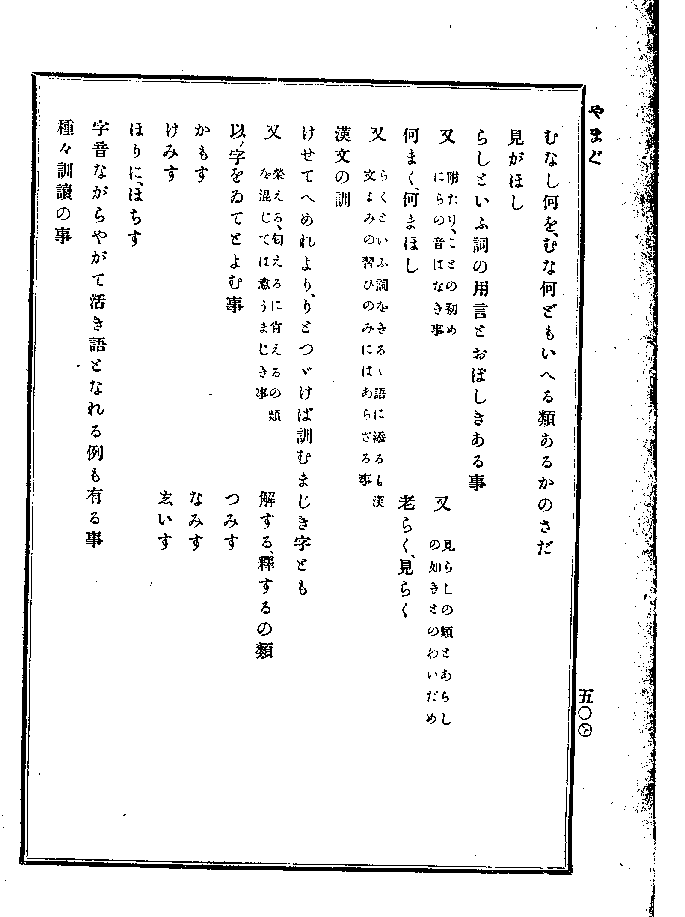 やまど
むなし何を、むな何どもいへる類あるかのさだ
見がほし
らしといふ詞の用言とおぼしきある事
又 附たり、ことの初め
にらの音はなき事
又 見らしの類とあらし
の如きとのわいだめ
何まく、何まほし
老らく、見らく
又 らくといふ詞をきるゝ語に添るも漢
文よみの習ひのみにはあらざる事
漢文の訓
けせてへめれより、りとつゞけば訓むまじき字とも
又 榮える、匂えるに肖えるの類
を混じては意うまじき事
解する、釋するの類
以ノ字をゐてとよむ事
つみす
かもす
なみす
けみす
玄いす
ほりに、ほちす
字音ながらやがて活き語となれる例も有る事
種々訓讀の事
五〇